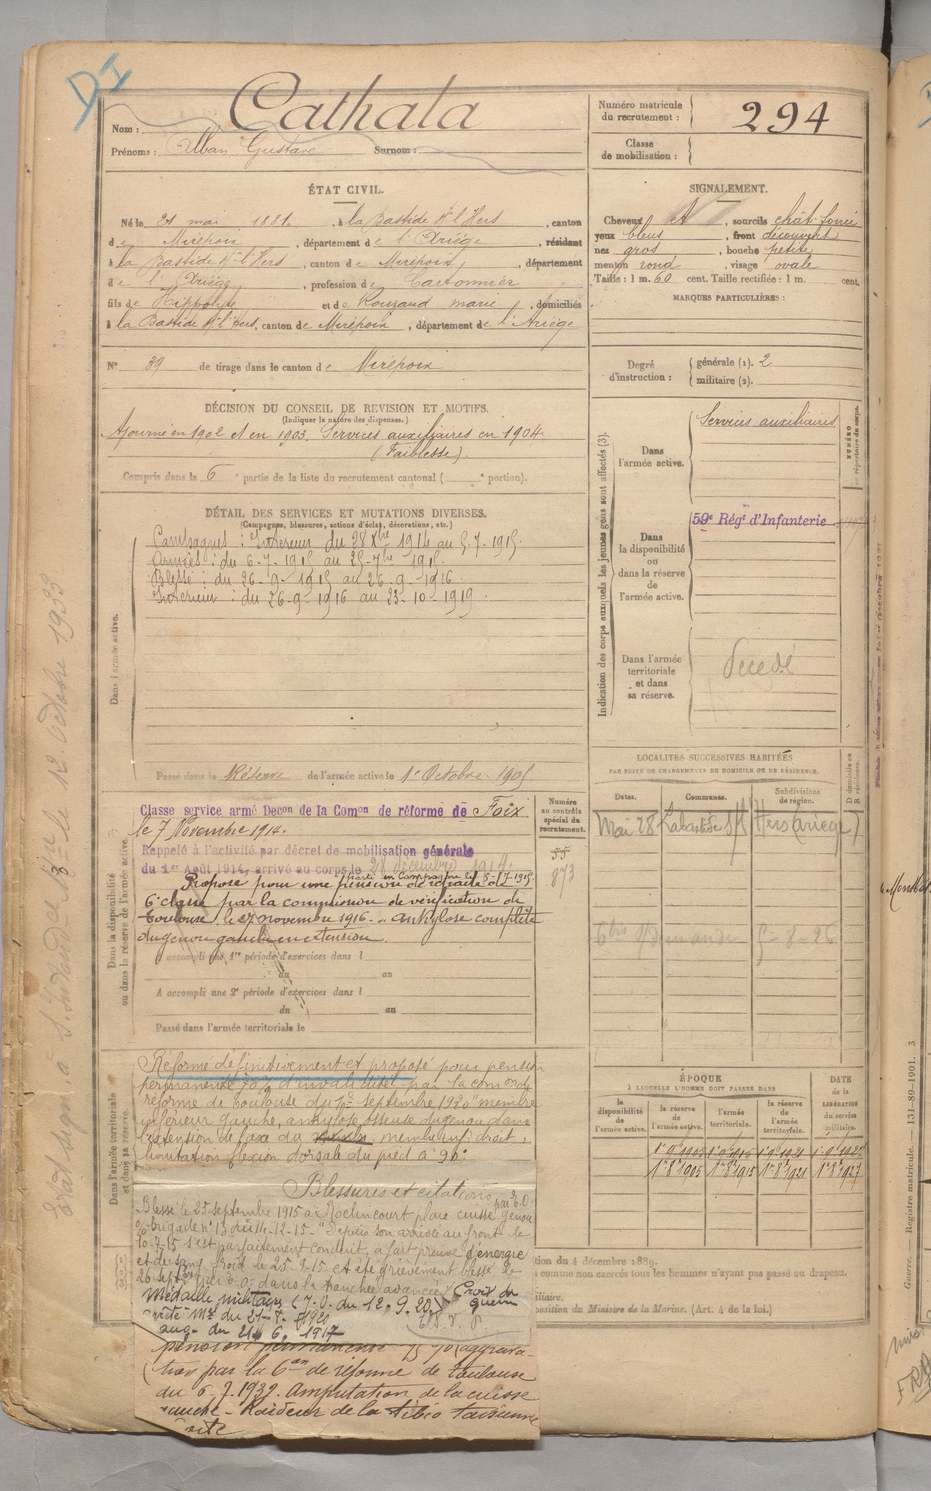 DI
Nom : Cathala
Prénoms : Alban Gustave Surnom :
Numéro matricule du recrutement : 294
Classe de mobilisation :
ÉTAT CIVIL.
Né le 21 mai 1881, à la Bastide St l'Hers, canton
de Mirepoix, département de l'Ariège, résidant
à la Bastide St l'Hers, canton de Mirepoix, département
de l'Ariège, profession de Cartonnier
fils de Hippolyte et de Rouzaud marie, domiciliés
à la Bastide St l'Hers, canton de Mirepoix, département de l'Ariège
N° 39 de tirage dans le canton de Mirepoix
SIGNALEMENT.
Cheveux et sourcils chât. foncé
yeux bleus, front découvert
nez gros, bouche petite
menton rond, visage ovale
Taille : 1 m. 60 cent. Taille rectifiée : 1 m. cent.
MARQUES PARTICULIÈRES :
Degré d'instruction : générale (1). 2
militaire (2).
DÉCISION DU CONSEIL DE REVISION ET MOTIFS.
(Indiquer la nature des dispenses.)
Ajourné en 1902 et en 1903. Services auxiliaires en 1904
(Faiblesse).
Compris dans la 6e partie de la liste du recrutement cantonal ( e portion).
DÉTAIL DES SERVICES ET MUTATIONS DIVERSES.
(Campagnes, blessures, actions d'éclat, décorations, etc.)
Dans l'armée active.
Campagnes : Intérieur du 28 Xbre 1914 au 5-7-1915.
Armées : du 6-7-1915 au 25-7bre 1915.
Blessé : du 26-9-1915 au 26-9-1916.
Intérieur : du 26-9-1916 au 23-10-1919.
Passé dans la Réserve de l'armée active le 1er Octobre 1905
Indication des corps auxquels les jeunes gens sont affectés (3).
NUMÉRO au répertoire du corps.
Dans l'armée active.
Services auxiliaires
Dans la disponibilité ou dans la réserve de l'armée active.
59e Régt d'Infanterie
Dans l'armée territoriale et dans sa réserve.
Décédé
Dans la disponibilité ou dans la réserve de l'armée active.
Classé service armé Décon de la Comon de réforme de Foix
le 7 Novembre 1914.
Rappelé à l'activité par décret de mobilisation générale
du 1er Août 1914, arrivé au corps le 28 décembre 1914.
Parti en campagne le 5-7-1915
Proposé pour une pension de retraite de
6e classe par la commission de vérification de
Toulouse le 27 novembre 1916 - ankylose complète
du genou gauche en extension.
A accompli une 1re période d'exercices dans l
du au
A accompli une 2e période d'exercices dans l
du au
Passé dans l'armée territoriale le
Numéro au contrôle spécial du recrutement.
55
873
LOCALITÉS SUCCESSIVES HABITÉES
PAR SUITE DE CHANGEMENTS DE DOMICILE OU DE RÉSIDENCE.
Dates. Communes. Subdivisions de région. D domicile ou R résidence.
Mai 28 Labastide s/l Hers (Ariège)
5-8-26
ÉPOQUE
À LAQUELLE L'HOMME DOIT PASSER DANS
la disponibilité de l'armée active. la réserve de l'armée active. l'armée territoriale. la réserve de l'armée territoriale.
DATE de la LIBÉRATION du service militaire.
1er 8bre 1905 1er 8bre 1915 1er 8bre 1921 1er 8bre 1927
Dans l'armée territoriale et dans sa réserve.
Réformé définitivement et proposé pour pension
permanente 70% d'invalidité par la comon de
réforme de Toulouse du 1er septembre 1920 membre
inférieur gauche, ankylose osseuse du genou dans
l'extension de l'axe du membre inf. droit,
limitation flexion dorsale du pied à 90°.
Blessures et citations
Blessé le 25 septembre 1915 à Roclincourt plaie cuisse genou par E.O.
O/ brigade n° 13 du 14-12-15 - "Depuis son arrivée au front le
10-7-15 s'est parfaitement conduit, a fait preuve d'énergie
et de sang froid le 25-8-15 et été grièvement blessé le
26 septbre par e.o. dans la tranchée avancée." Croix de guerre
Médaille militaire (J.O. du 12.9.20)
pension permanente 75% (aggravation
par la Con de réforme de Toulouse
du 6.7.1932. Amputation de la cuisse
gauche - Raideur de la tibio tarsienne
droite
tion du 4 décembre 1889.
comme non exercés tous les hommes n'ayant pas passé au drapeau.
iliaire.
position du Ministre de la Marine. (Art. 4 de la loi.)
Guerre. — Registre matricule. — 131-89-1901. 3